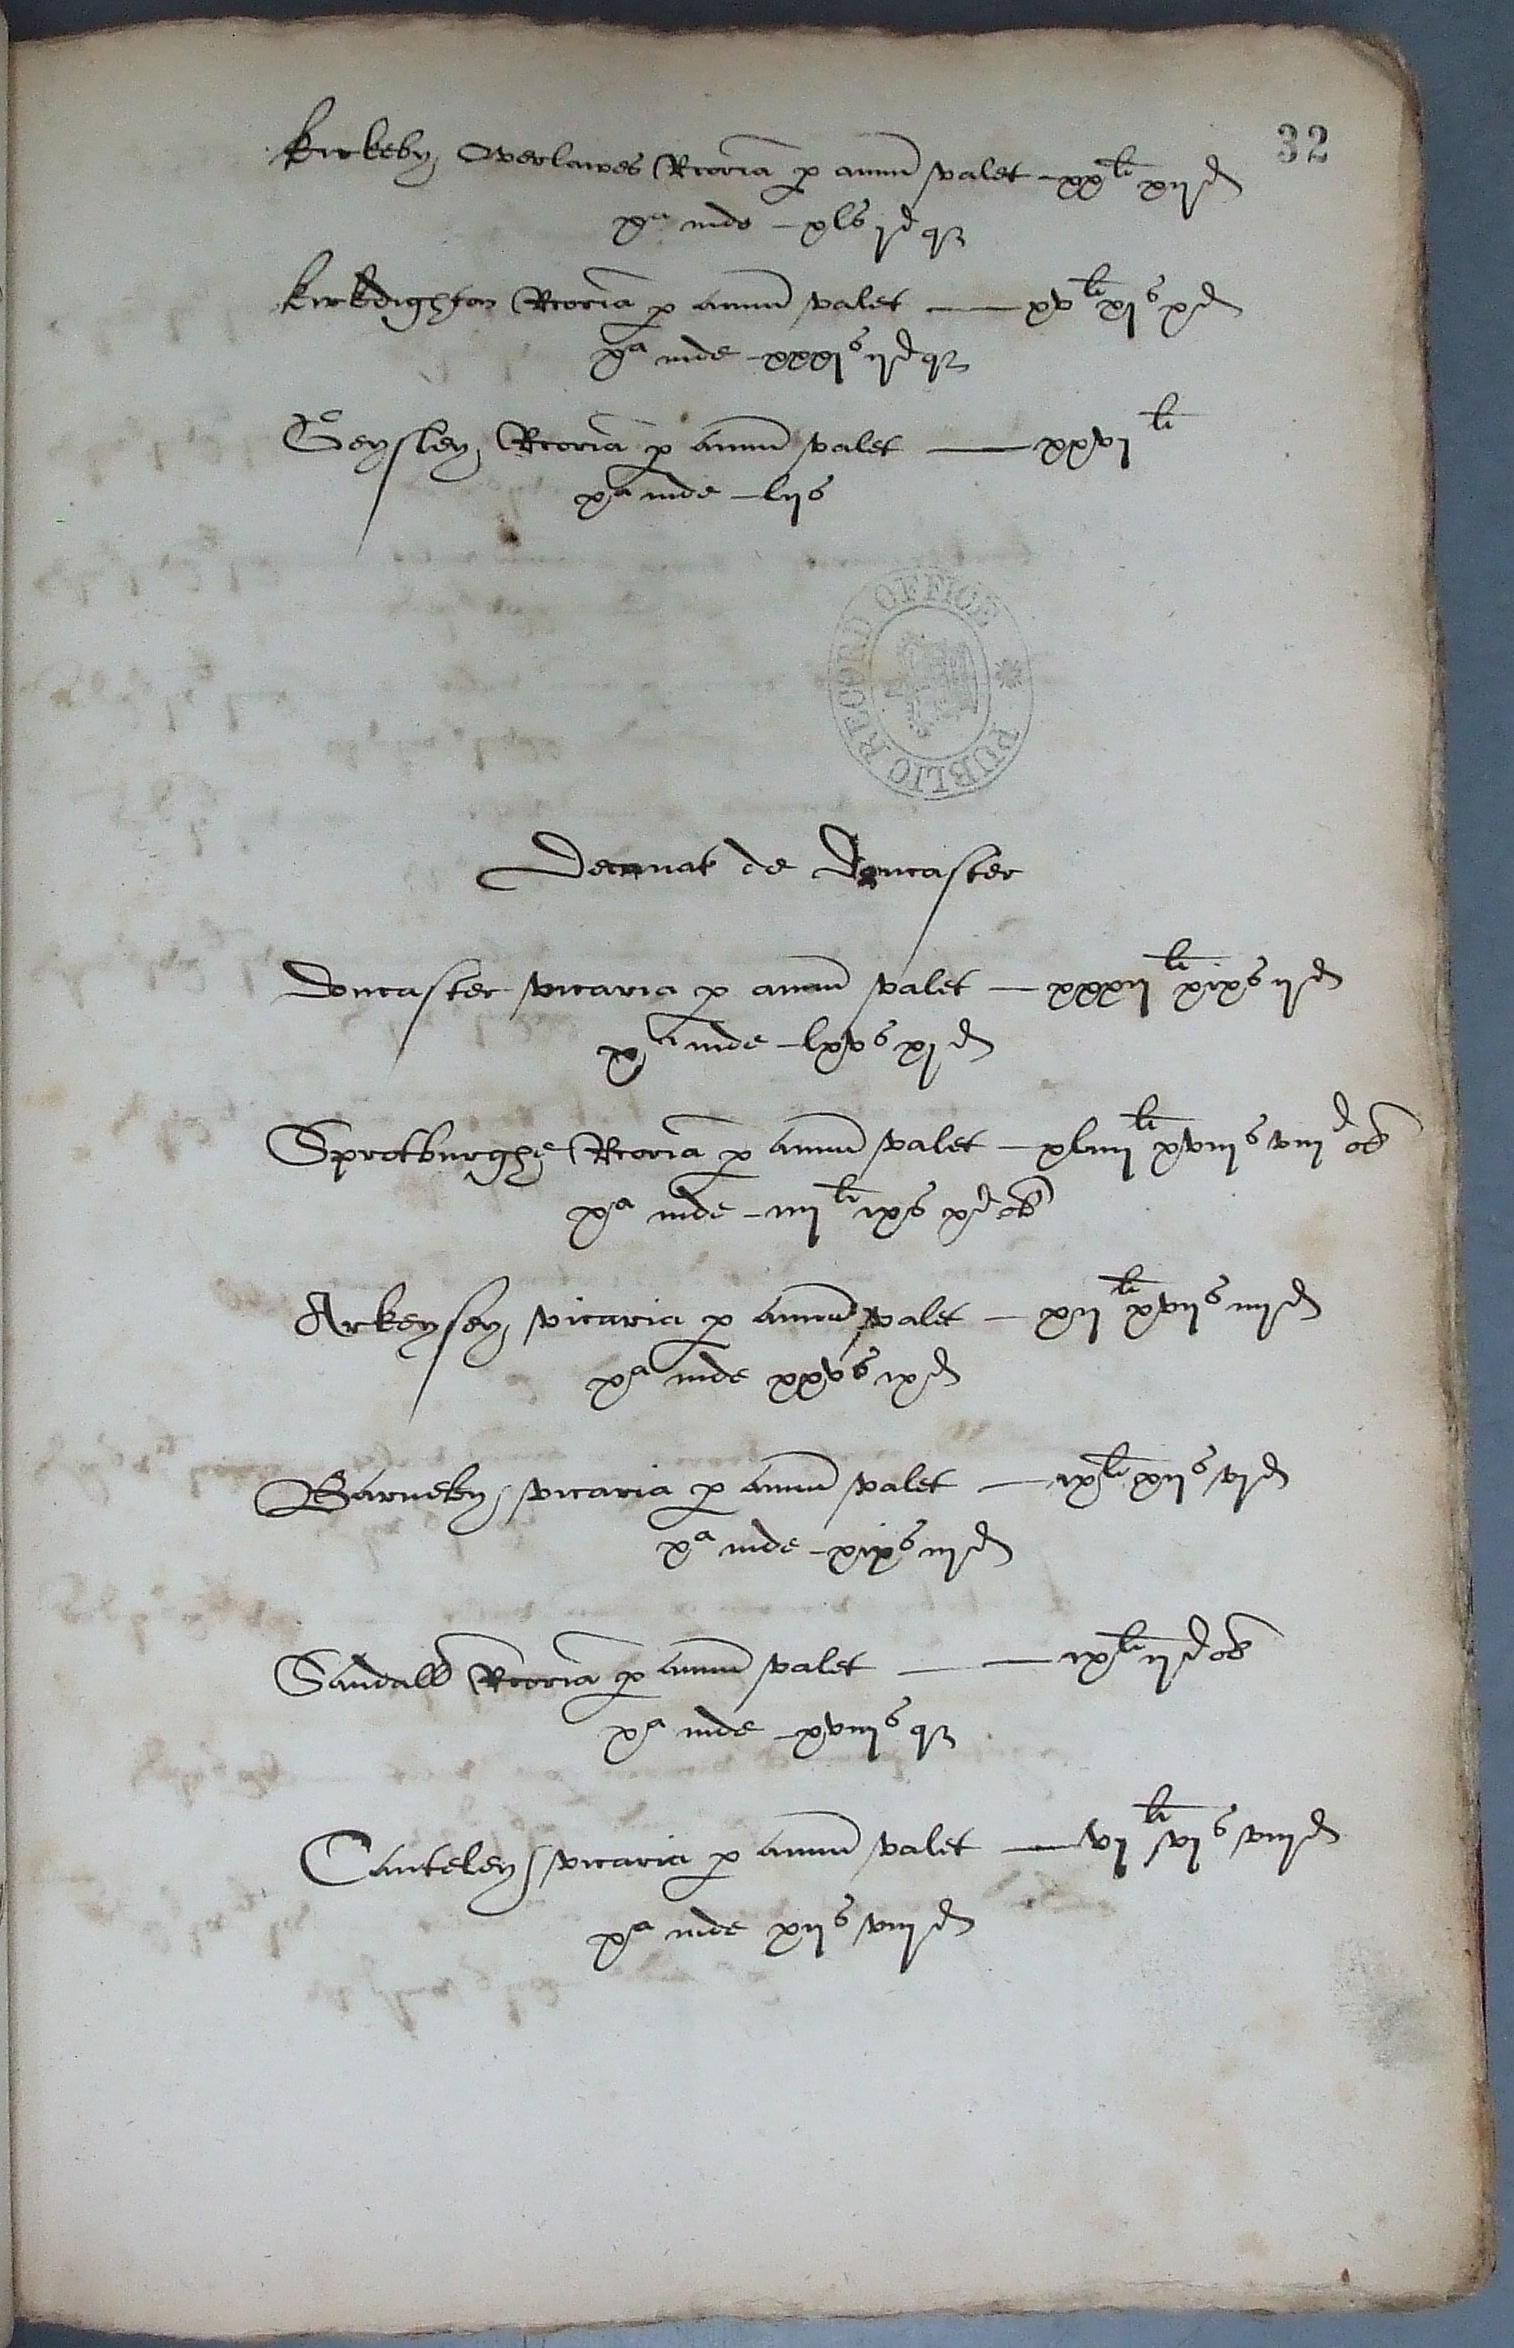 32
Kirkeby Overlaires Rcoria p annu valet – xxli xijd
xa inde – xls jd qz
Kirkdighton Rcoria p annu valet — xvli xjs xd
xa inde – xxxjs ijd qz
Geysley Rcoria p annu valet — xxvjli
xa inde – lijs
PUBLIC RECORD OFFICE
Decanat de Doncaster
Doncaster vicaria p annu valet – xxxijli xixs ijd
xa inde – lxvs xjd
Sprotburghe Rcoria p annu valet – xliiijli xviijs viijd ob
xa inde – iiijli ixs xd ob
Arkeysey vicaria p annu valet – xijli xvijs iiijd
xa inde xxvs ixd
Barneby vicaria p annu valet – ixli xijs vjd
xa inde – xixs iijd
Sandall Rcoria p annu valet — ixli ijd ob
xa inde – xviijs qz
Canteley vicaria p annu valet – vjli vjs viijd
xa inde xijs viijd